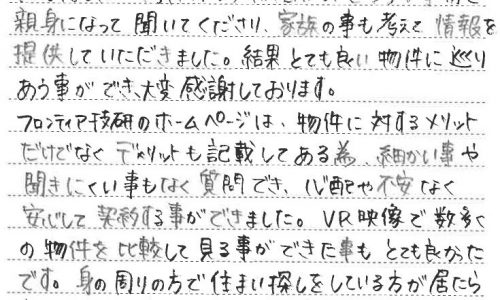 親身になって聞いてくださり、家族の事も考えて情報を
提供していただきました。結果とても良い物件に巡り
あう事ができ、大変感謝しております。
フロンティア技研のホームページは、物件に対するメリット
だけでなくデメリットも記載してある為、細かい事や
聞きにくい事もなく質問でき、心配や不安なく
安心して契約する事ができました。VR映像で数多く
の物件を比較して見る事ができた事もとても良かった
です。身の周りの方で住まい探しをしている方が居たら